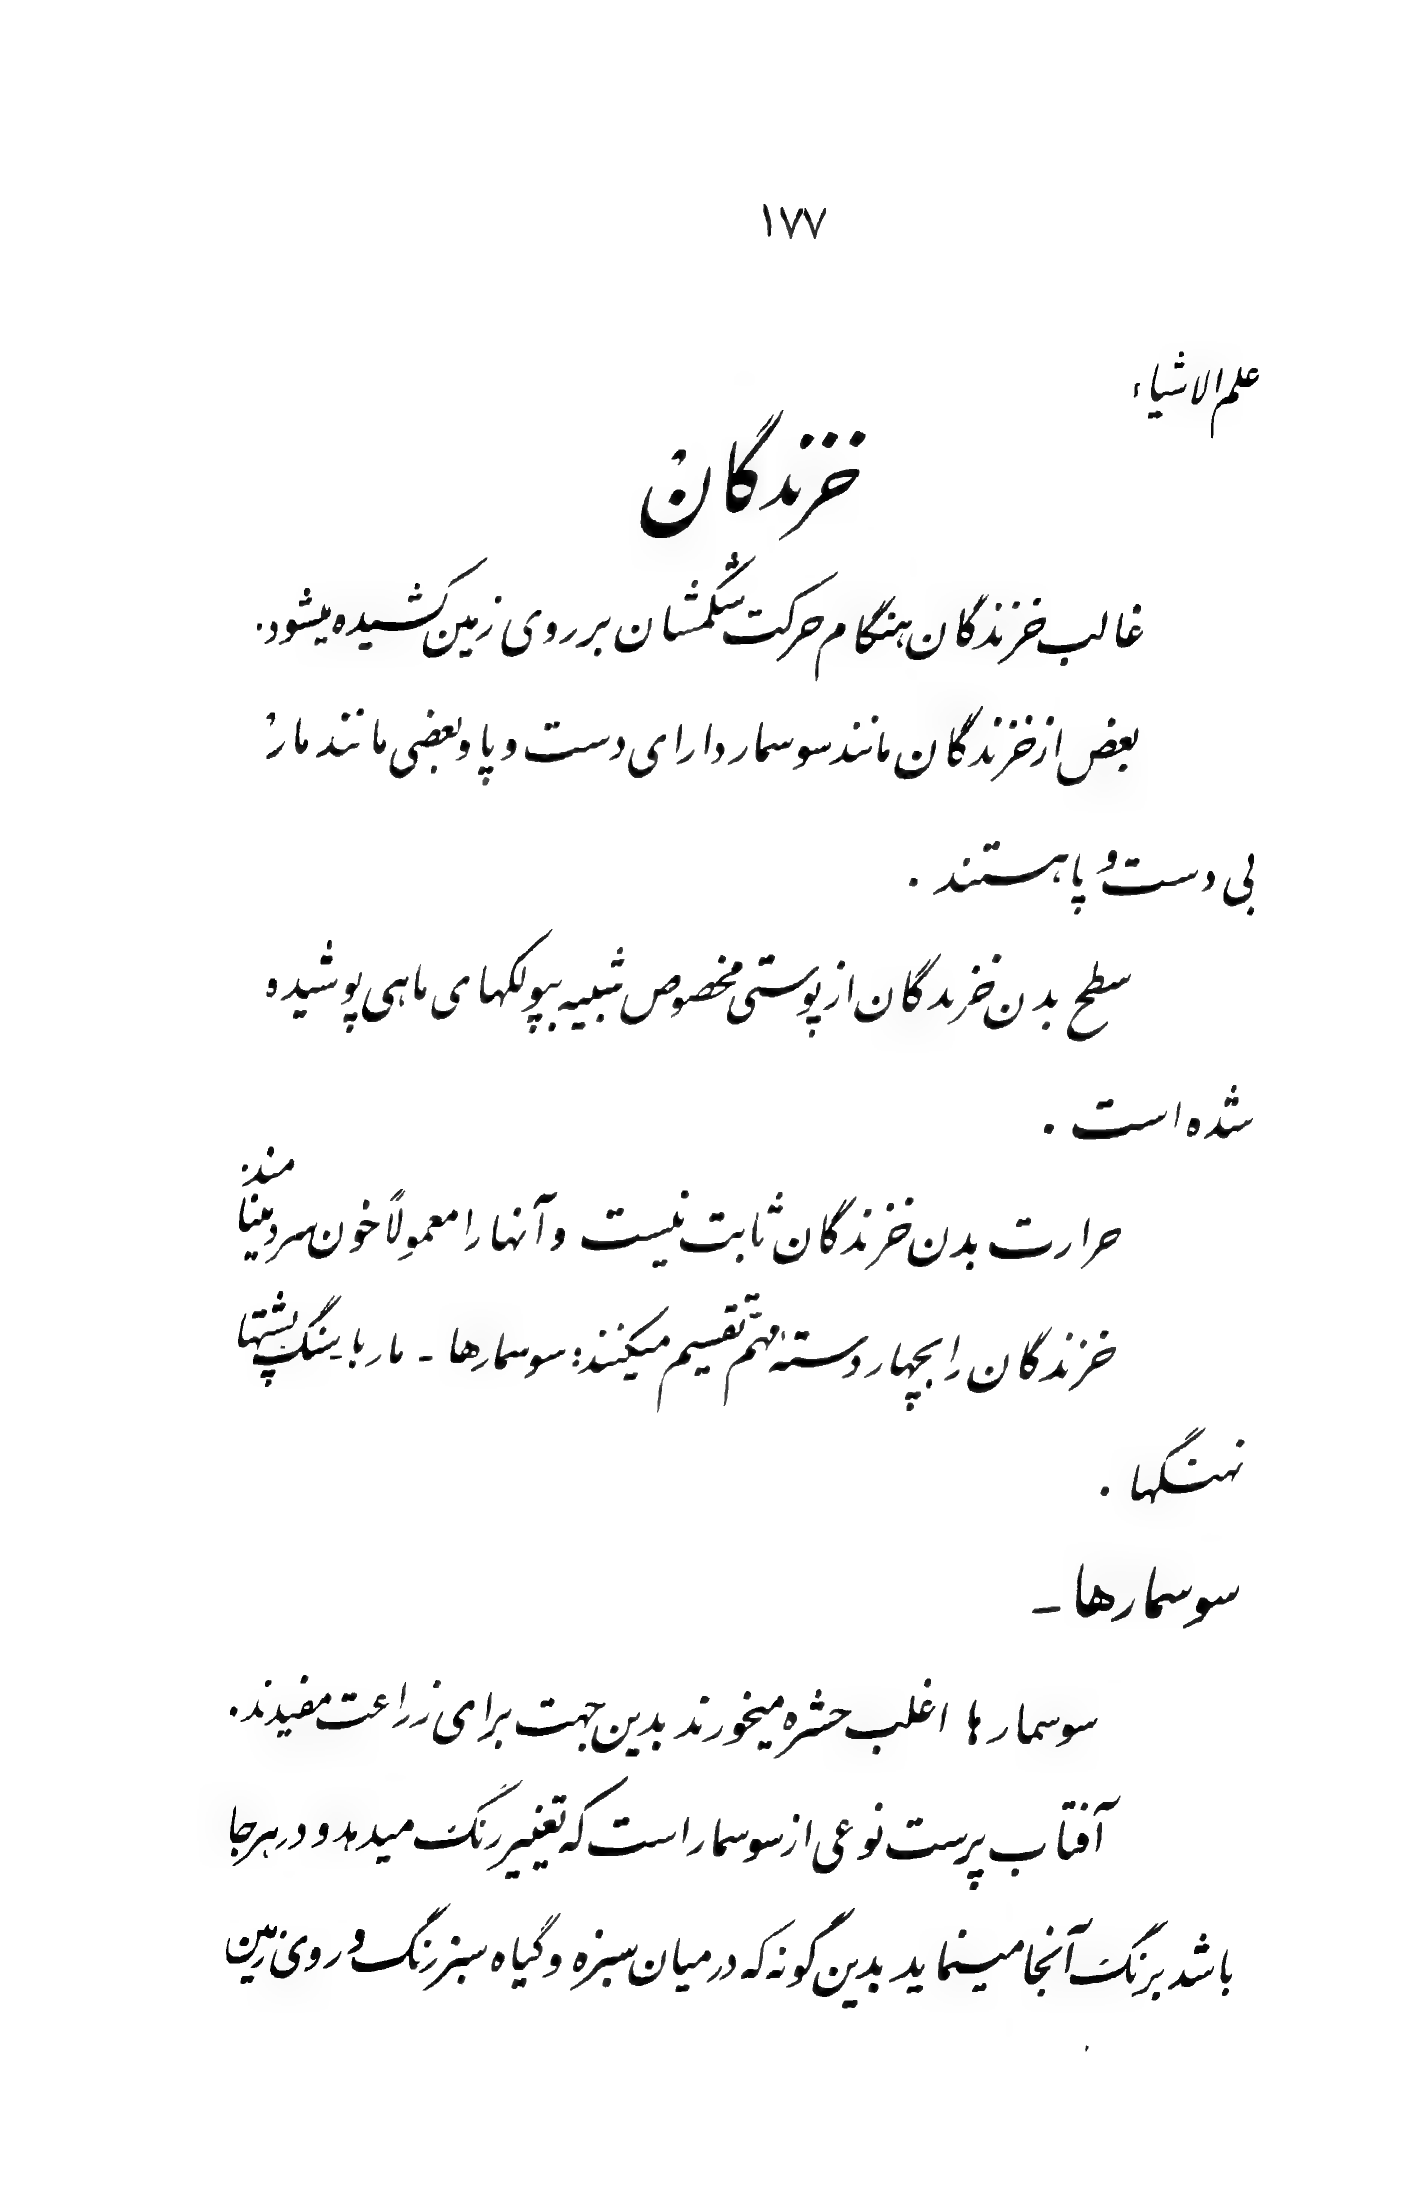 ۱۷۷
علم الاشیاء
خزندگان
غالب خزندگان هنگام حرکت شکمشان بر روی زمین کشیده میشود.
بعض از خزندگان مانند سوسمار دارای دست و پا و بعضی مانند مار
بی دست و پا هستند .
سطح بدن خزندگان از پوستی مخصوص شبیه بپولکهای ماهی پوشیده
شده است .
حرارت بدن خزندگان ثابت نیست و آنها را معمولاً خون سرد مینامند.
خزندگان را بچهار دستهٔ مهم تقسیم میکنند: سوسمارها - مارها - سنگ پشتها
نهنگها .
سوسمارها -
سوسمارها اغلب حشره میخورند بدین جهت برای زراعت مفیدند.
آفتاب پرست نوعی از سوسمار است که تغییر رنگ میدهد و در هر جا
باشد برنگ آنجا مینماید بدین گونه که در میان سبزه و گیاه سبز رنگ و روی زمین